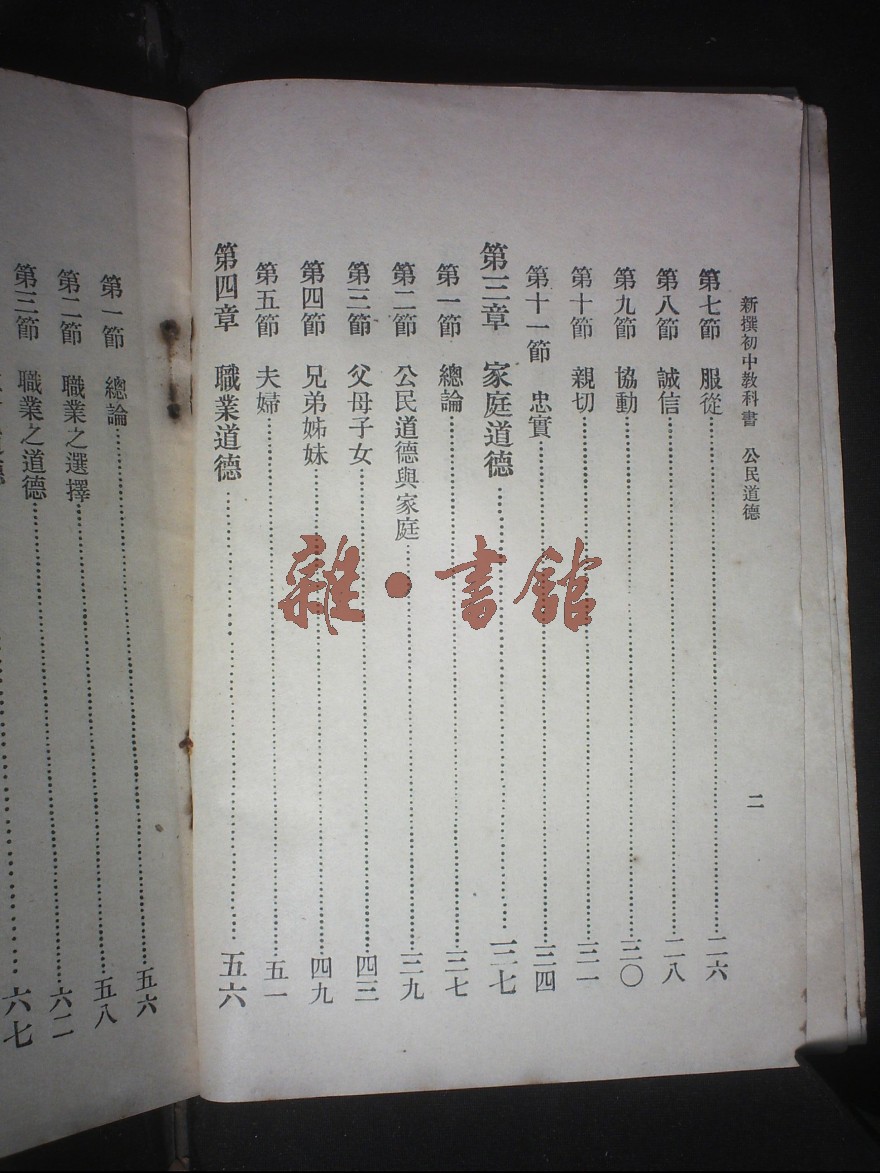 新撰初中教科書 公民道德
二
第七節 服從 二六
第八節 誠信 二八
第九節 協動 三〇
第十節 親切 三一
第十一節 忠實 三四
第三章 家庭道德 三七
第一節 總論 三七
第二節 公民道德與家庭 三九
第三節 父母子女 四三
第四節 兄弟姊妹 四九
第五節 夫婦 五一
第四章 職業道德 五六
第一節 總論 五六
第二節 職業之選擇 五八
第三節 職業之道德 六二
德 六七
雜·書館